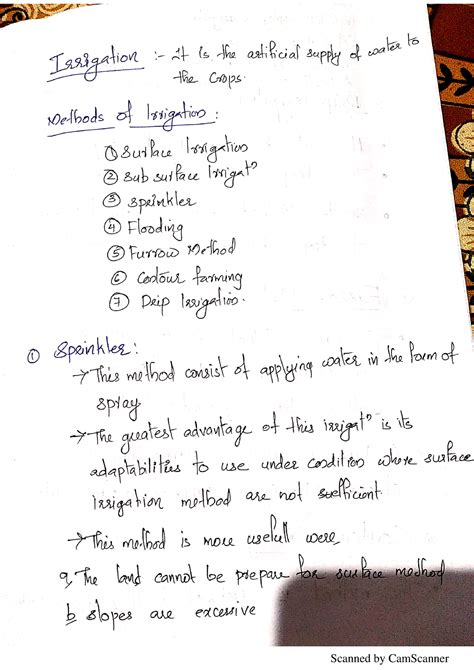 Irrigation :- It is the artificial supply of water to
the crops.
Methods of Irrigation :
① Surface Irrigation
② Sub surface Irrigatⁿ
③ Sprinkler
④ Flooding
⑤ Furrow Method
⑥ Contour farming
⑦ Drip Irrigation.
① Sprinkler :
→ This method consist of applying water in the form of
spray
→ The greatest advantage of this irrigatⁿ is its
adaptabilities to use under condition where surface
irrigation method are not sefficient.
→ This method is more usefull were,
a, The land cannot be prepare for surface method
b slopes are excessive
Scanned by CamScanner